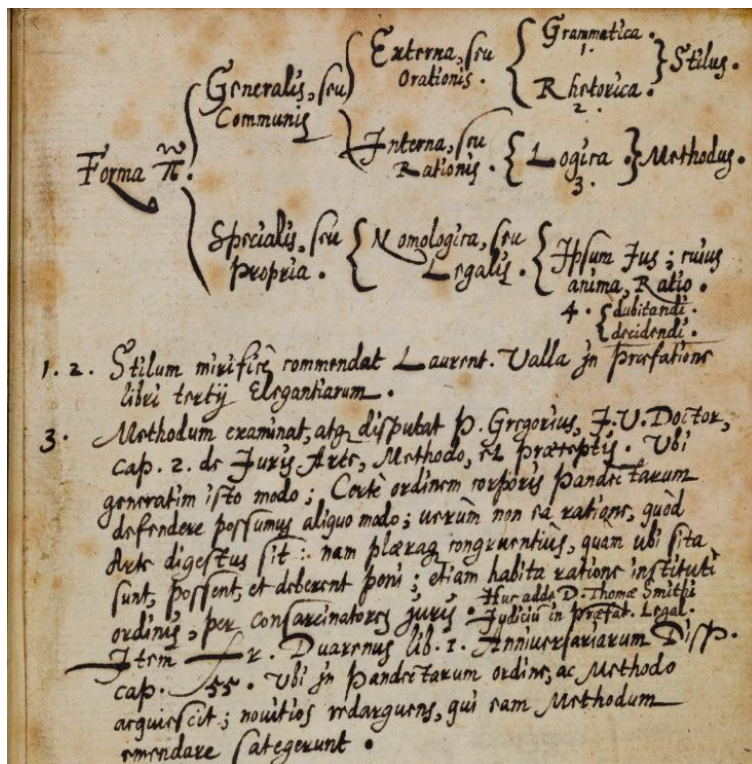 Generalis, seu
Communis
Externa, seu
Orationis.
Grammatica.
1.
Rhetorica.
2.
Stilus.
Forma π.
Interna, seu
Rationis.
Logica.
3.
Methodus.
Specialis, seu
Propria.
Nomologica, seu
Legalis.
Ipsum Jus; cuius
anima, Ratio.
4. dubitandi.
decidendi.
1. 2. Stilum mirificè commendat Laurent. Valla in Præfatione
libri tertij Elegantiarum.
3. Methodum examinat, atq disputat P. Gregorius, J. V. Doctor,
cap. 2. de Juris Arte, Methodo, et Præceptis. Vbi
generatim isto modo; Certè ordinem corporis Pandectarum
defendere possumus aliquo modo; uerùm non ea ratione, quòd
Arte digestus sit: nam plæraq congruentiùs, quàm ubi sita
sunt, possent, et deberent poni; etiam habita ratione instituti
ordinis, per consarcinatores juris. Huc adde D. Thomæ Smithi
Judiciū in Præfat. Legal.
Item Fr. Duarenus lib. 1. Anniversariarum Disp.
cap. 55. Vbi in Pandectarum ordine, ac Methodo
acquiescit; nouitios redarguens, qui eam Methodum
emendare sategerunt.